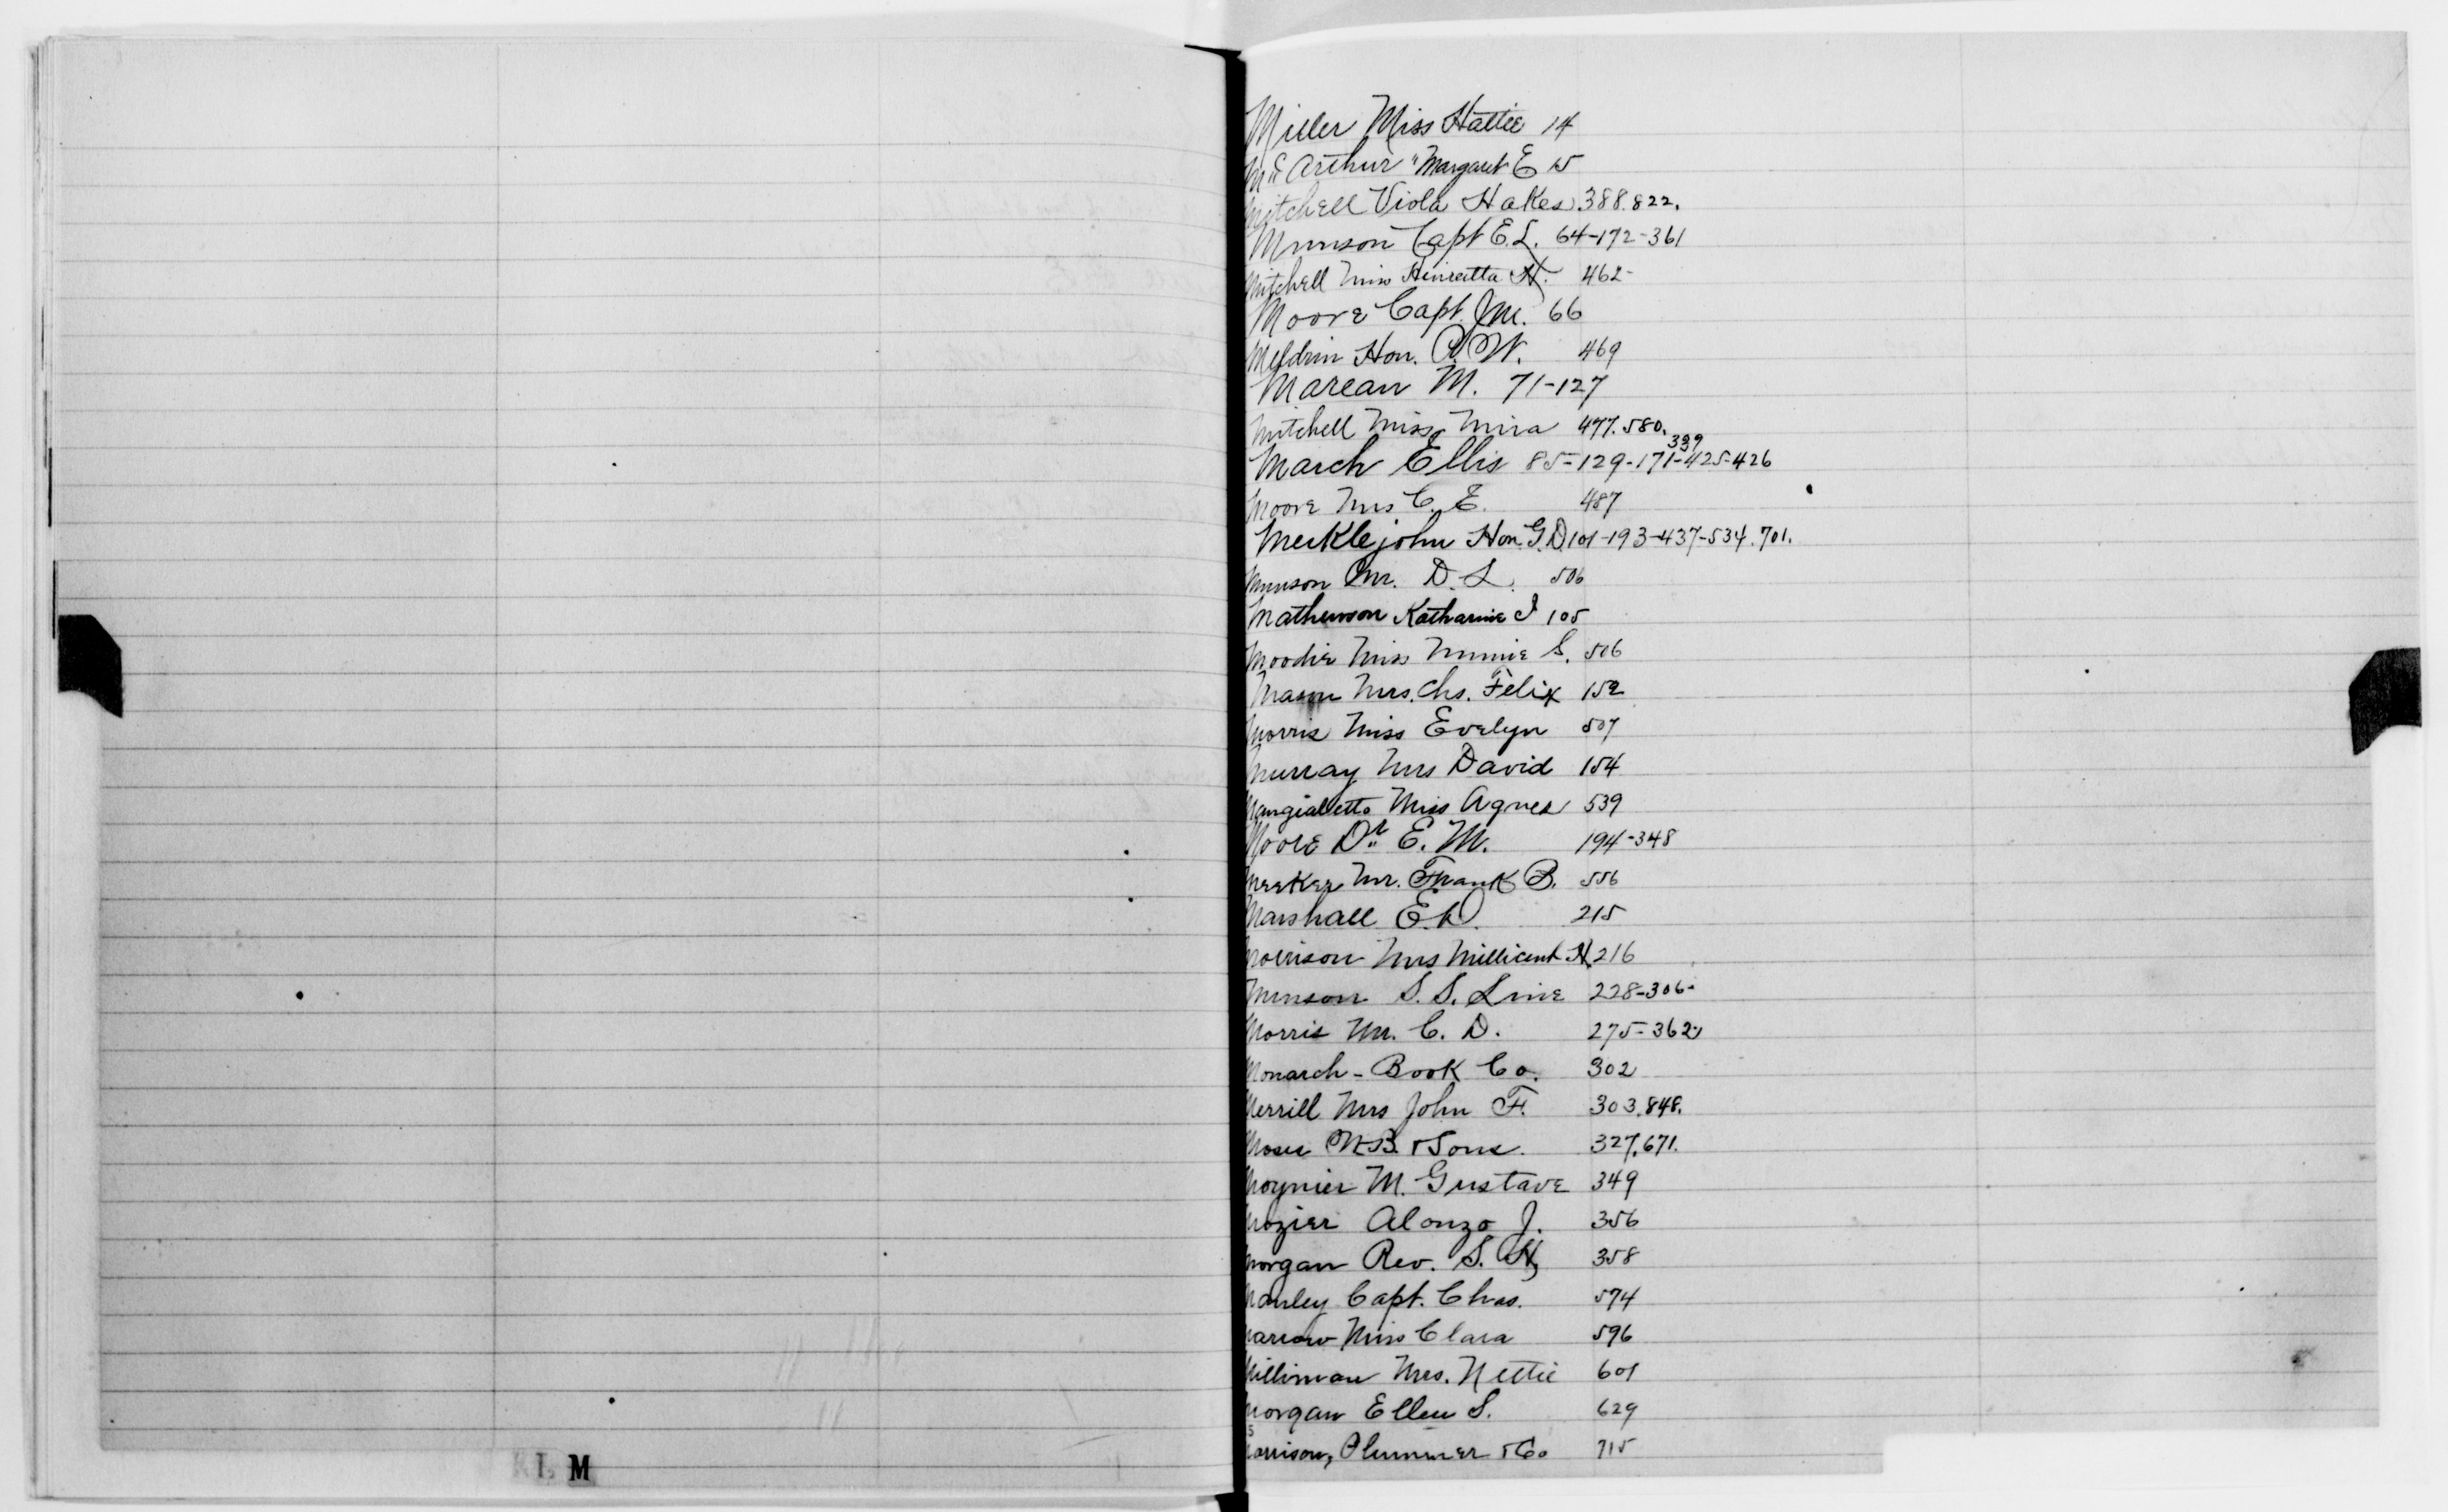 Miller Miss Hattie 14
McArthur " Margaret E 15
Mitchell Viola Hakes 388.822.
Munson Capt E. L. 64-172-361
Mitchell Miss Henrietta H. 462-
Moore Capt. Jno. 66
Meldrin Hon. P. W. 469
Marean M. 71-127
Mitchell Miss Mira 477.580.
399
March Ellis 85-129-171-425-426
Moore Mrs C. E. 487
Meiklejohn Hon. G. D. 101-193-437-534.701.
Munson Mr. D. L. 506
Mathewson Katharine I 105
Moodie Miss Minnie S. 506
Mason Mrs. Chs. Felix 152
Morris Miss Evelyn 507
Murray Mrs David 154
Mangialetto Miss Agnes 539
Moore Dr. E. M. 194-348
Meeker Mr. Frank B. 556
Marshall E. R. 215
Morrison Mrs Millicent H. 216
Munson S. S. Line 228-306-
Morris Mr. C. D. 275-362
Monarch-Book Co. 302
Merrill Mrs John F. 303.848.
Moses W. B. & Sons. 327.671.
Moynier M. Gustave 349
Mozier Alonzo J. 356
Morgan Rev. S. H. 358
Manley Capt. Chas. 574
Marrow Miss Clara 596
Milliman Mrs. Nettie 601
Morgan Ellen S. 629
Morrison, Plummer & Co 715
L M